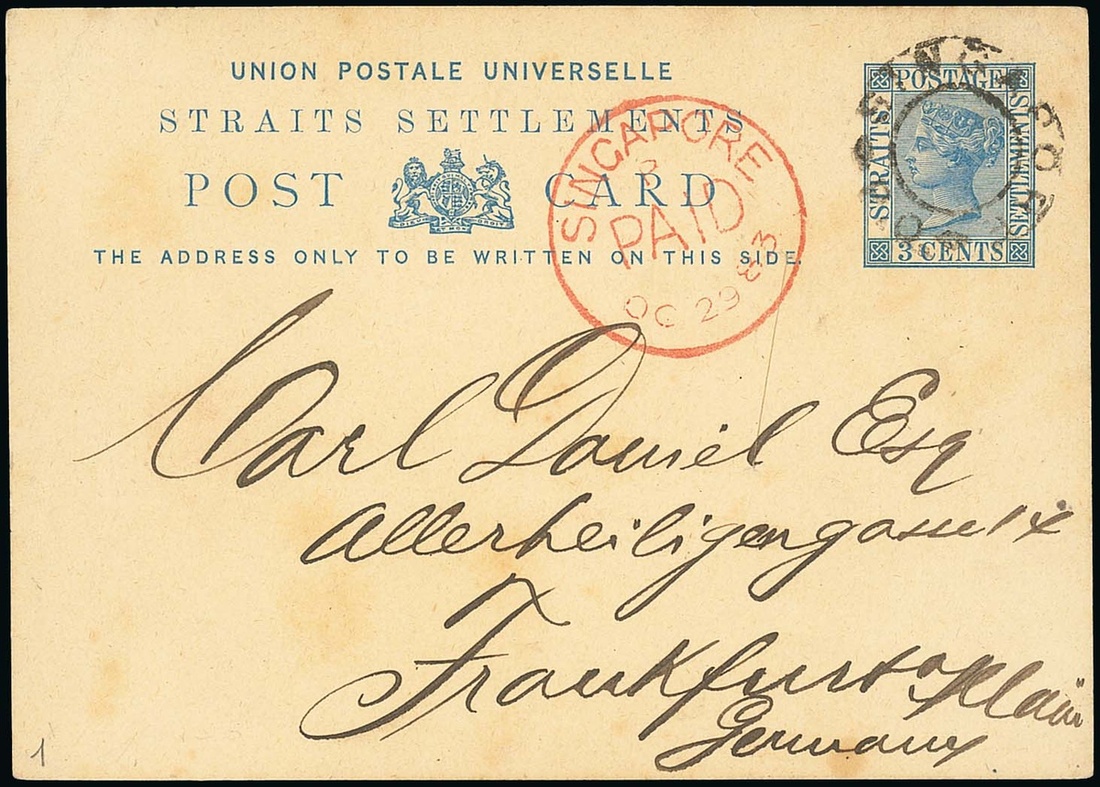 UNION POSTALE UNIVERSELLE
STRAITS SETTLEMENTS
POST CARD
THE ADDRESS ONLY TO BE WRITTEN ON THIS SIDE.
POSTAGE
STRAITS
SETTLEMENTS
3 CENTS
SINGAPORE
PAID
OC 29 83
SINGAPORE
Carl Daniel Esq
Allerheiligengasse
Frankfurt a Main
Germany
1